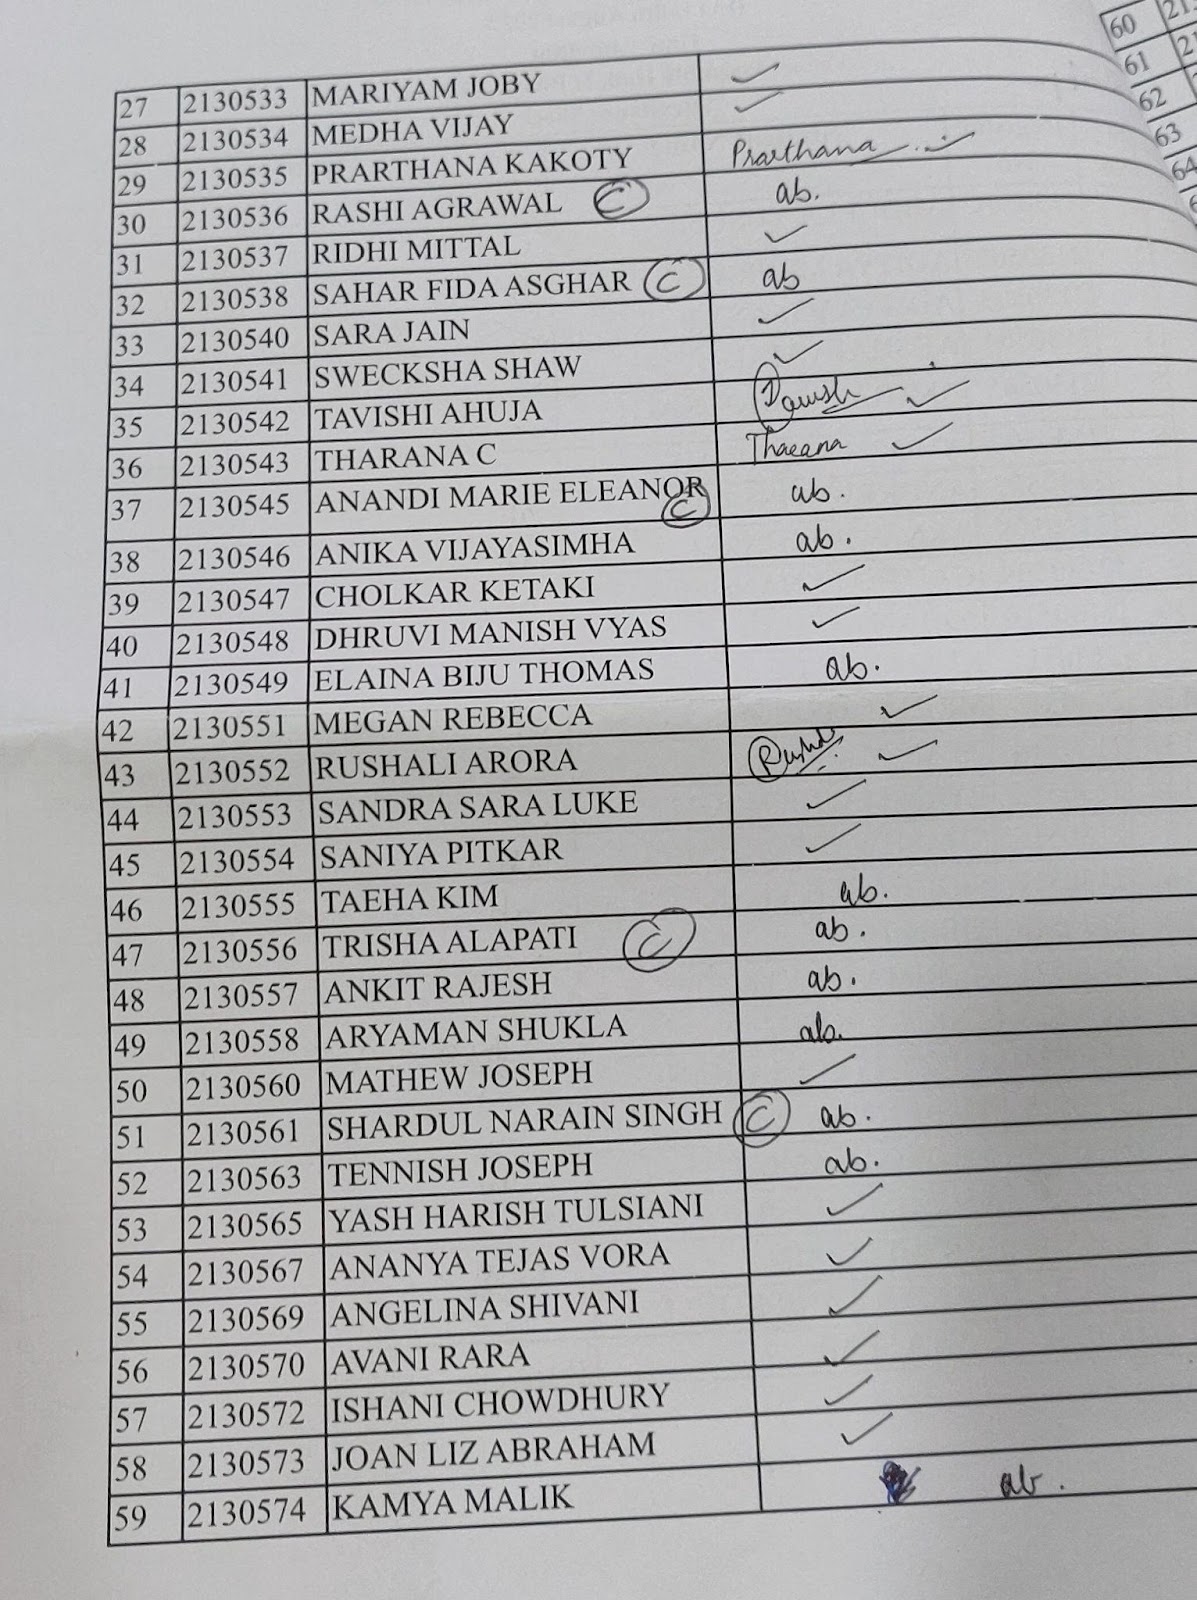 27 2130533 MARIYAM JOBY ✓
28 2130534 MEDHA VIJAY ✓
29 2130535 PRARTHANA KAKOTY Prarthana ✓
30 2130536 RASHI AGRAWAL C ab.
31 2130537 RIDHI MITTAL ✓
32 2130538 SAHAR FIDA ASGHAR C ab
33 2130540 SARA JAIN ✓
34 2130541 SWECKSHA SHAW ✓
35 2130542 TAVISHI AHUJA ✓
36 2130543 THARANA C Tharana ✓
37 2130545 ANANDI MARIE ELEANOR C ab.
38 2130546 ANIKA VIJAYASIMHA ab.
39 2130547 CHOLKAR KETAKI ✓
40 2130548 DHRUVI MANISH VYAS ✓
41 2130549 ELAINA BIJU THOMAS ab.
42 2130551 MEGAN REBECCA ✓
43 2130552 RUSHALI ARORA ✓
44 2130553 SANDRA SARA LUKE ✓
45 2130554 SANIYA PITKAR ✓
46 2130555 TAEHA KIM ab.
47 2130556 TRISHA ALAPATI C ab.
48 2130557 ANKIT RAJESH ab.
49 2130558 ARYAMAN SHUKLA ab.
50 2130560 MATHEW JOSEPH ✓
51 2130561 SHARDUL NARAIN SINGH C ab.
52 2130563 TENNISH JOSEPH ab.
53 2130565 YASH HARISH TULSIANI ✓
54 2130567 ANANYA TEJAS VORA ✓
55 2130569 ANGELINA SHIVANI ✓
56 2130570 AVANI RARA ✓
57 2130572 ISHANI CHOWDHURY ✓
58 2130573 JOAN LIZ ABRAHAM ✓
59 2130574 KAMYA MALIK ab.
60
61
62
63
64